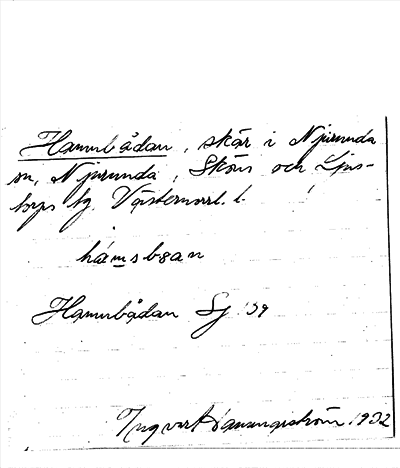 Hamnbådan, skär i Njurunda
sn, Njurunda, Sköns och Ljus-
torps tg. Västernorrl. l.
hámsbɜan
Hamnbådan Sj 39
Ingvar 1932